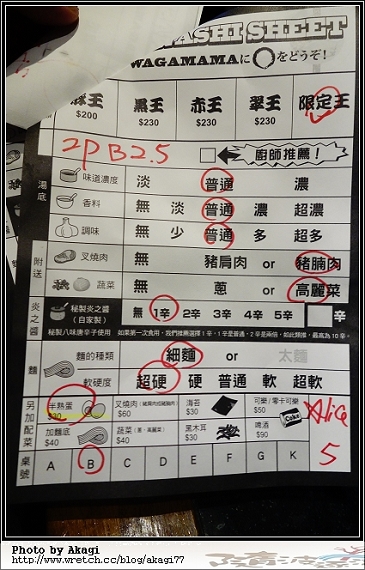 ASHI SHEET
WAGAMAMAに をどうぞ!
豚王 黒王 赤王 翠王 限定王
$200 $230 $230 $230
2P B2.5
廚師推薦!
湯底
味道濃度 淡 普通 濃
香料 無 淡 普通 濃 超濃
調味 無 少 普通 多 超多
附送
叉燒肉 無 豬肩肉 or 豬腩肉
蔬菜 無 蔥 or 高麗菜
炎之醬
秘製炎之醬(自家製) 無 1辛 2辛 3辛 4辛 5辛 辛
秘製八味唐辛子使用 如果第一次食用,我們推薦選擇1辛。1辛是普通,2辛是兩倍,如此類推,最高為10辛。
麵
麵的種類 細麵 or 太麵
軟硬度 超硬 硬 普通 軟 超軟
另加配菜
半熟蛋 叉燒肉(豬肩肉或豬腩肉) 海苔 可樂/零卡可樂
$30 $60 $30 Coke
加麵底 蔬菜(蔥、高麗菜) 黑木耳 啤酒
$40 $40 $30 $90
Alice
5
桌號 A B C D E F G K
Photo by Akagi
http://www.wretch.cc/blog/akagi77